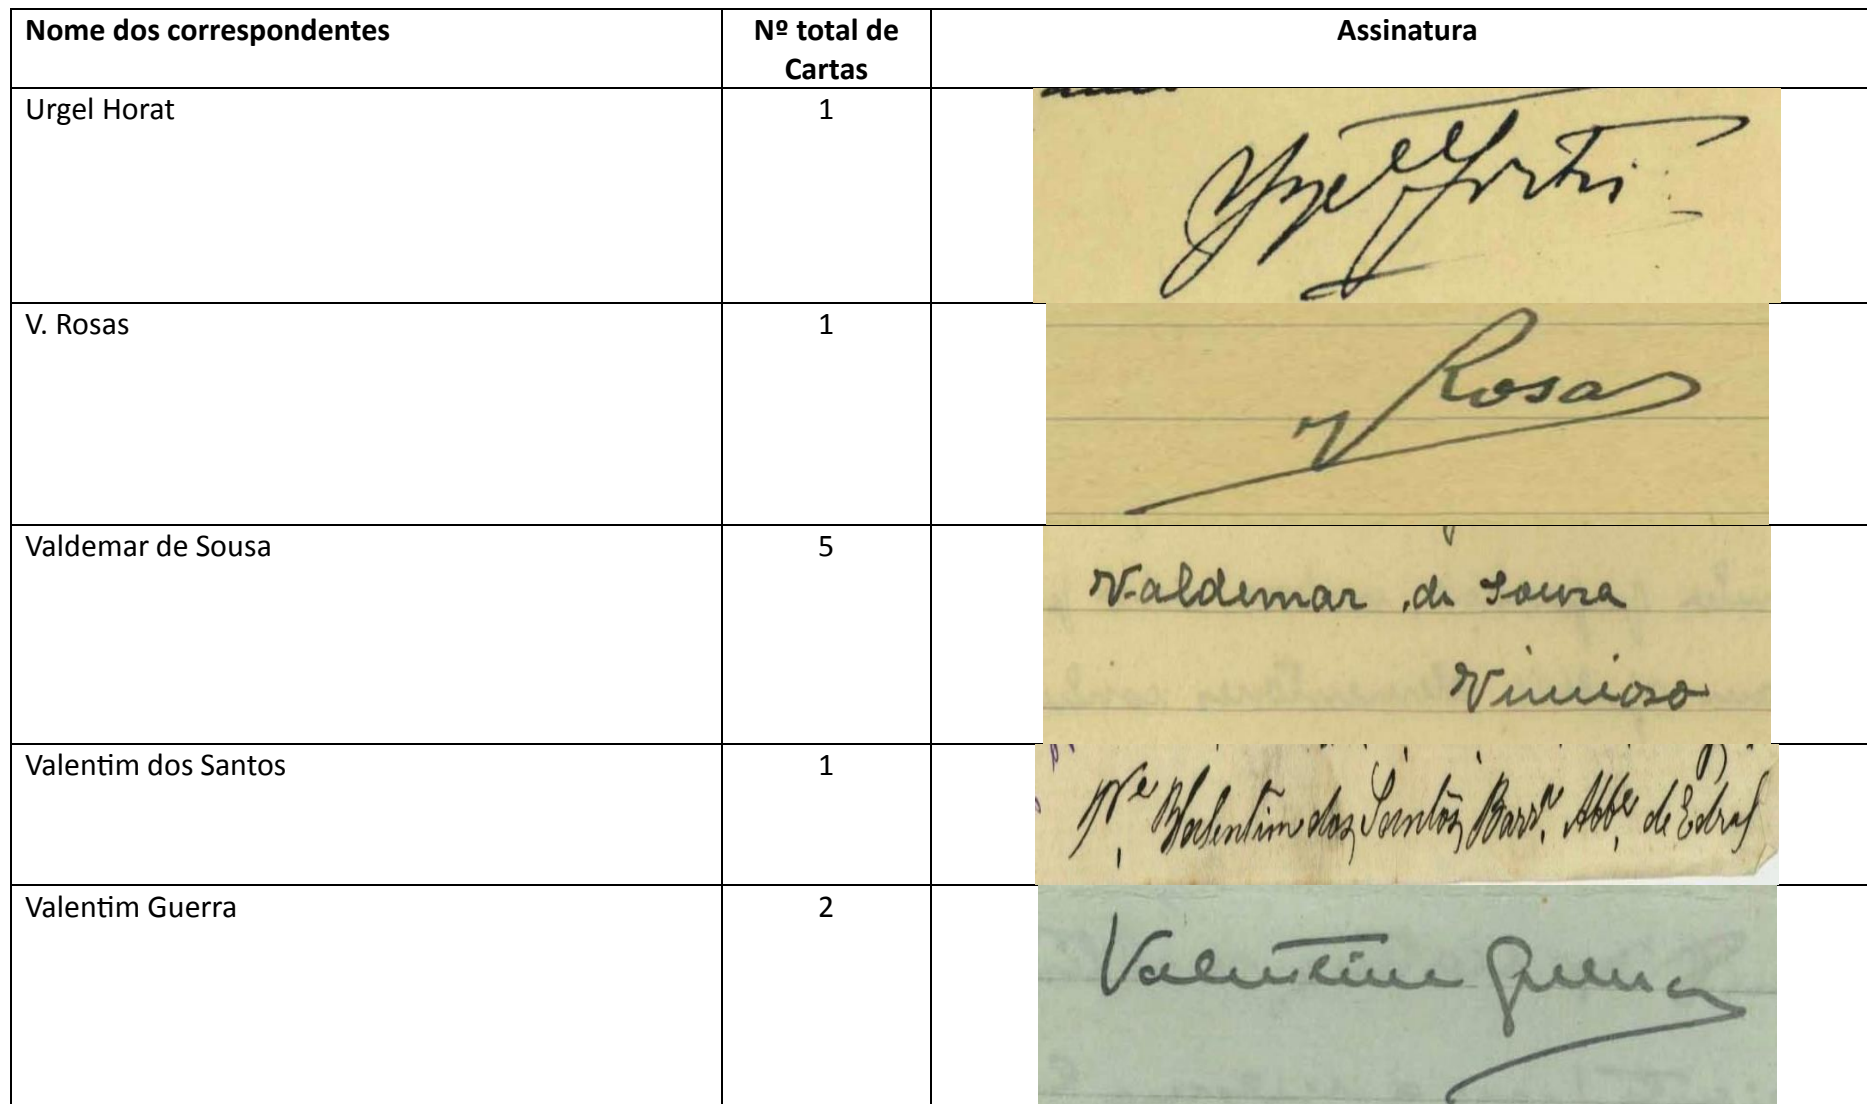 Nome dos correspondentes
Nº total de
Cartas
Assinatura
Urgel Horat
1
V. Rosas
1
V Rosas
Valdemar de Sousa
5
Valdemar de Souza
Vimioso
Valentim dos Santos
1
Pe. Valentim dos Santos Barr.º Abb.e de Edral
Valentim Guerra
2
Valentim Guerra